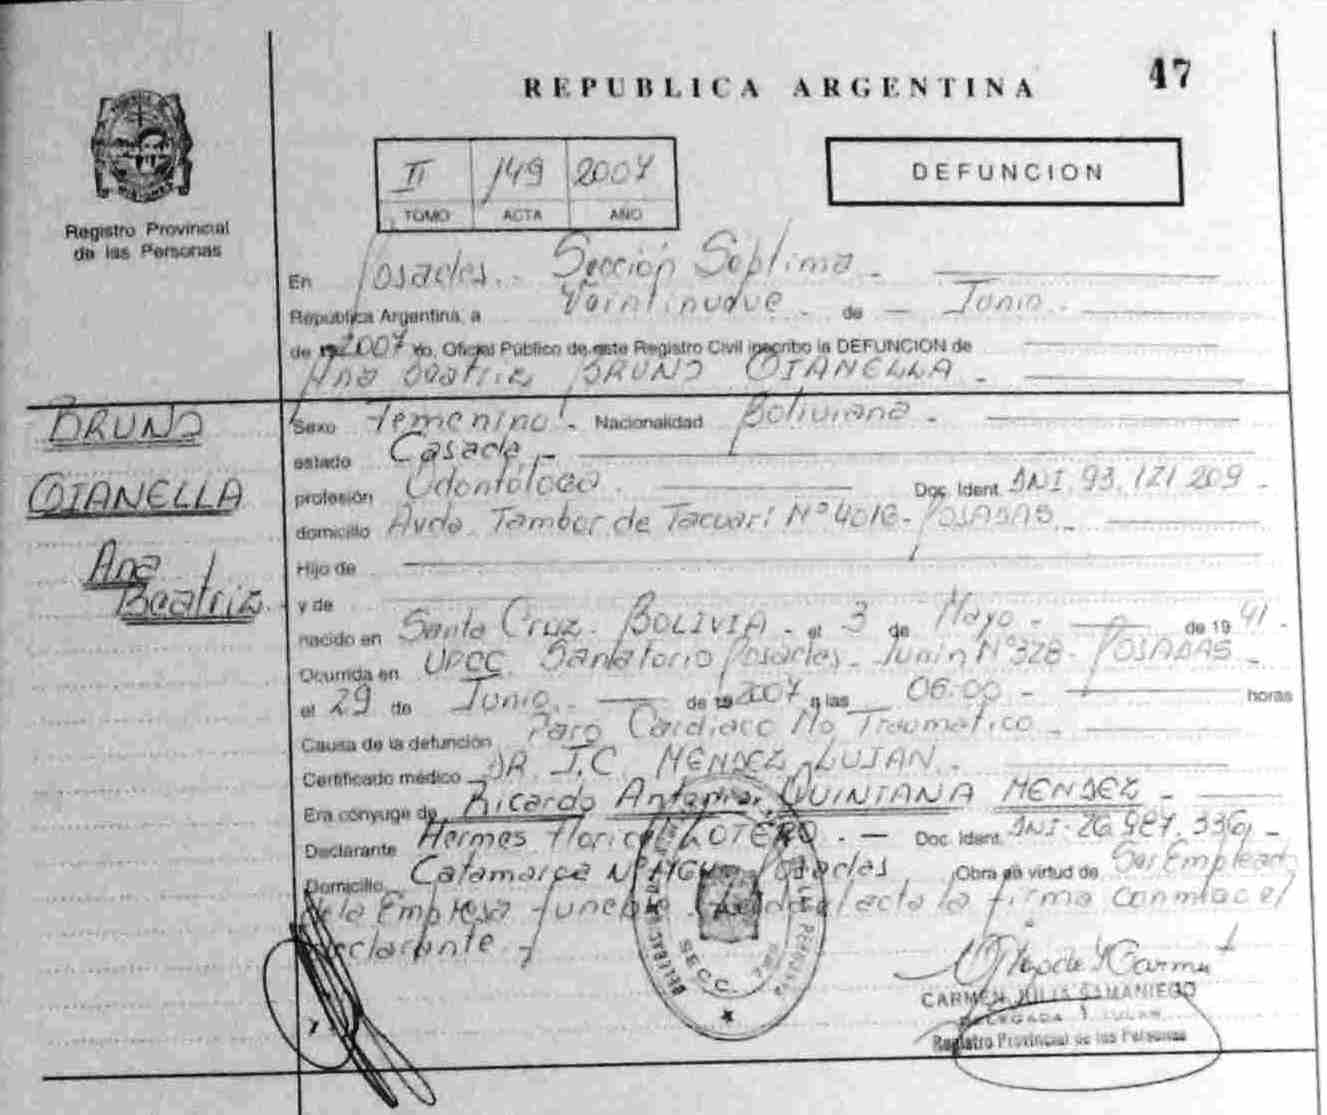 REPUBLICA ARGENTINA
47
Registro Provincial
de las Personas
II 149 2007
TOMO ACTA AÑO
DEFUNCION
En Posadas. Sección Séptima
República Argentina, a Veintinueve de Junio
de 2007 yo, Oficial Público de este Registro Civil inscribo la DEFUNCION de
Ana Beatriz BRUNO OJANELLA
BRUNO
OJANELLA
Ana
Beatriz
Sexo Femenino. Nacionalidad Boliviana
estado Casada
profesión Odontóloga Doc. Ident. DNI. 93.121.209
domicilio Avda. Tambor de Tacuarí Nº 4016- POSADAS
Hijo de
y de
nacido en Santa Cruz. BOLIVIA - el 3 de Mayo de 19 41
Ocurrida en UPCC. Sanatorio Posadas. Junín Nº 328- POSADAS
el 29 de Junio de 2007 a las 06:00 - horas
Causa de la defunción Paro Cardiaco No Traumático
Certificado médico DR. J.C. MENDEZ LUJAN
Era cónyuge de Ricardo Antonio QUINTANA MENDEZ
Declarante Hermes LOTERO. - Doc. Ident. DNI-26.987.336
Domicilio Catamarca Nº Posadas Obra en virtud de Ser Emplead
de la Empresa Funebre acta la firma conmigo el
declarante.
SECC.
CARMEN JULIA SAMANIEGO
DELEGADA TITULAR
Registro Provincial de las Personas